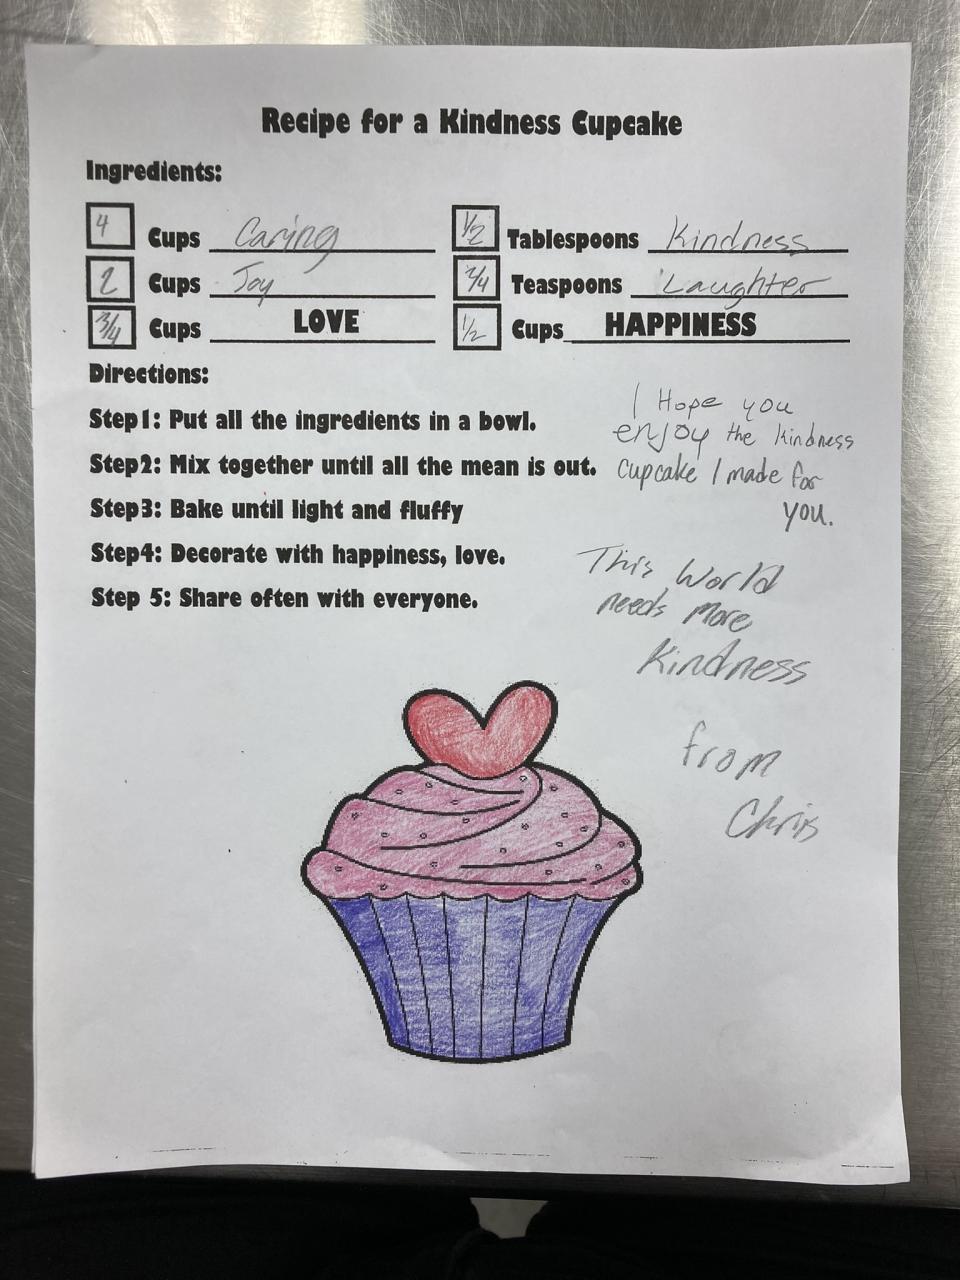 Recipe for a Kindness Cupcake
Ingredients:
4 Cups Caring 1/2 Tablespoons Kindness
2 Cups Joy Teaspoons Laughter
3/4 Cups LOVE 1/2 Cups HAPPINESS
Directions:
Step1: Put all the ingredients in a bowl.
Step2: Mix together until all the mean is out.
Step3: Bake until light and fluffy
Step4: Decorate with happiness, love.
Step 5: Share often with everyone.
I Hope you
enjoy the kindness
cupcake I made for
you.
This World
needs More
Kindness
from
Chris